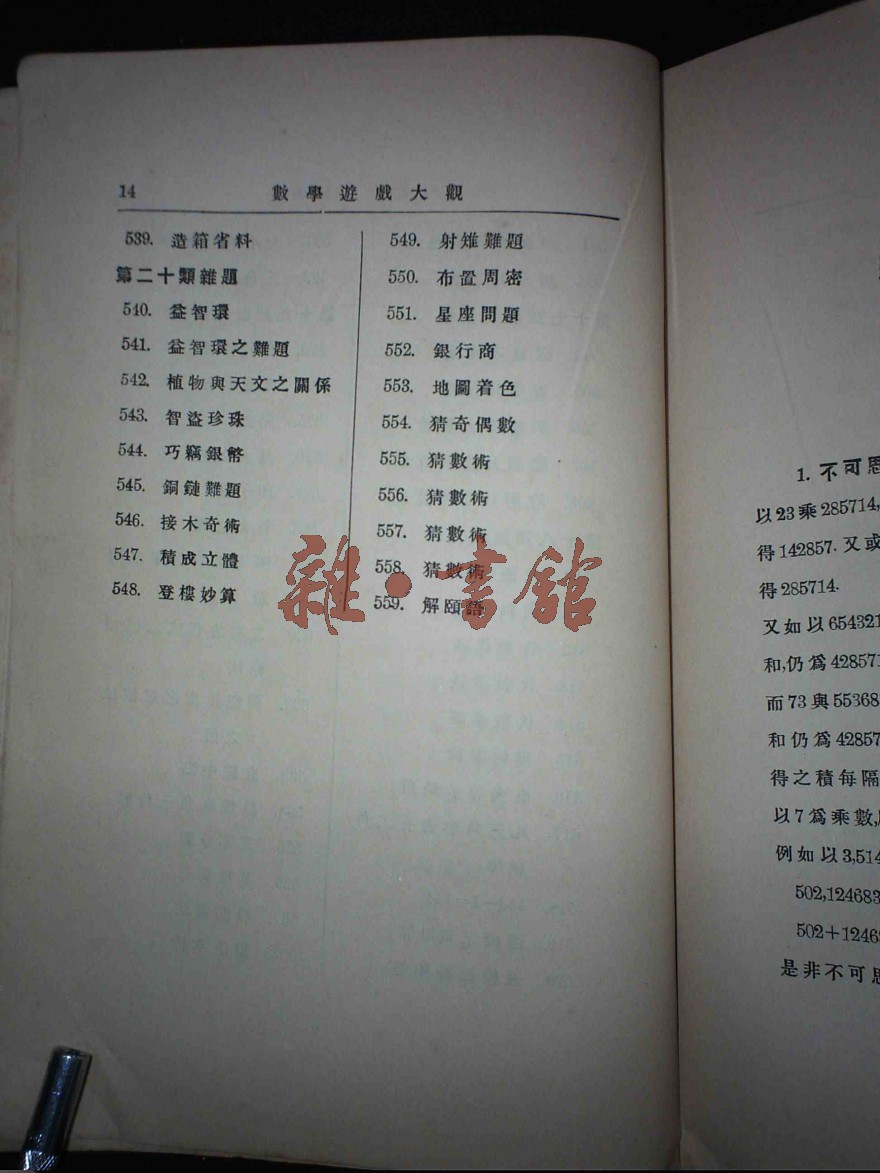 14 數學遊戲大觀
539. 造箱省料
第二十類雜題
540. 益智環
541. 益智環之難題
542. 植物與天文之關係
543. 智盜珍珠
544. 巧竊銀幣
545. 銅鏈難題
546. 接木奇術
547. 積成立體
548. 登樓妙算
549. 射雉難題
550. 布置周密
551. 星座問題
552. 銀行商
553. 地圖着色
554. 猜奇偶數
555. 猜數術
556. 猜數術
557. 猜數術
558. 猜數術
559. 解頤語
雜·書館
1. 不可思
以23乘285714,
得142857. 又或
得285714.
又如以654321
和,仍爲42857
而73與55368
和仍爲42857
得之積每隔
以7爲乘數,
例如以3,514
502,124683
502+1246
是非不可思